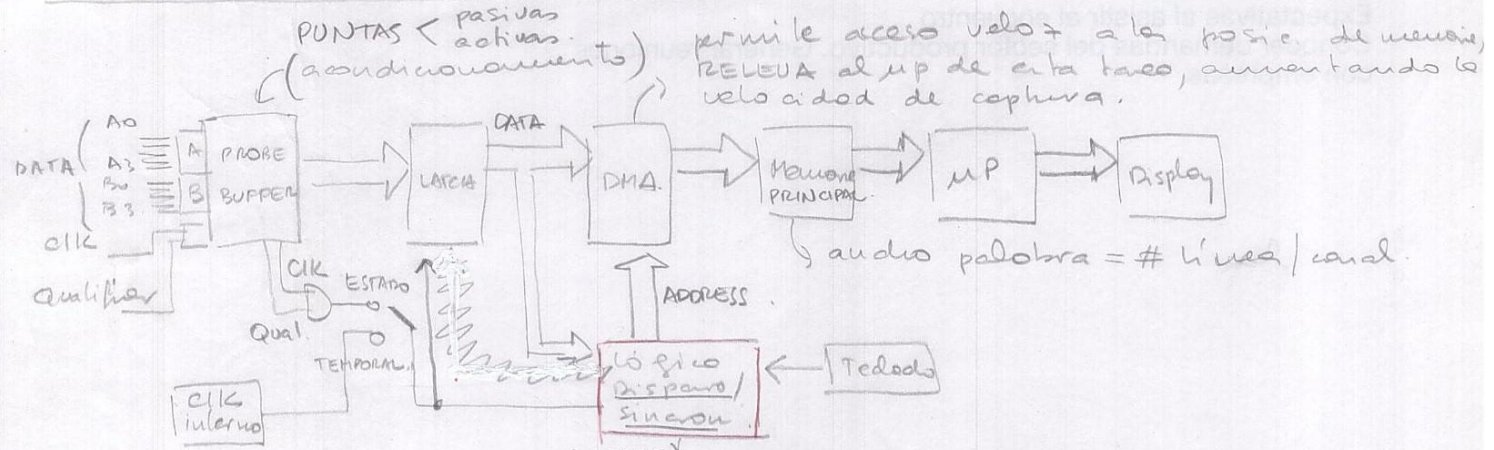 PUNTAS < pasivas
activas.
(acondicionamiento)
permite acceso veloz a la posic de memoria,
RELEVA al μp de esta tarea, aumentando la
velocidad de captura.
DATA
A0
A3
B0
B3
Clk
Qualifier
A
B
PROBE
BUFFER
LATCH
DATA
DMA.
Memoria
PRINCIPAL.
μP
Display
ancho palabra = # línea/canal.
Clk
Qual.
ESTADO
TEMPORAL.
ADDRESS.
Clk
interno
Lógica
Disparo/
Sincron.
Teclado